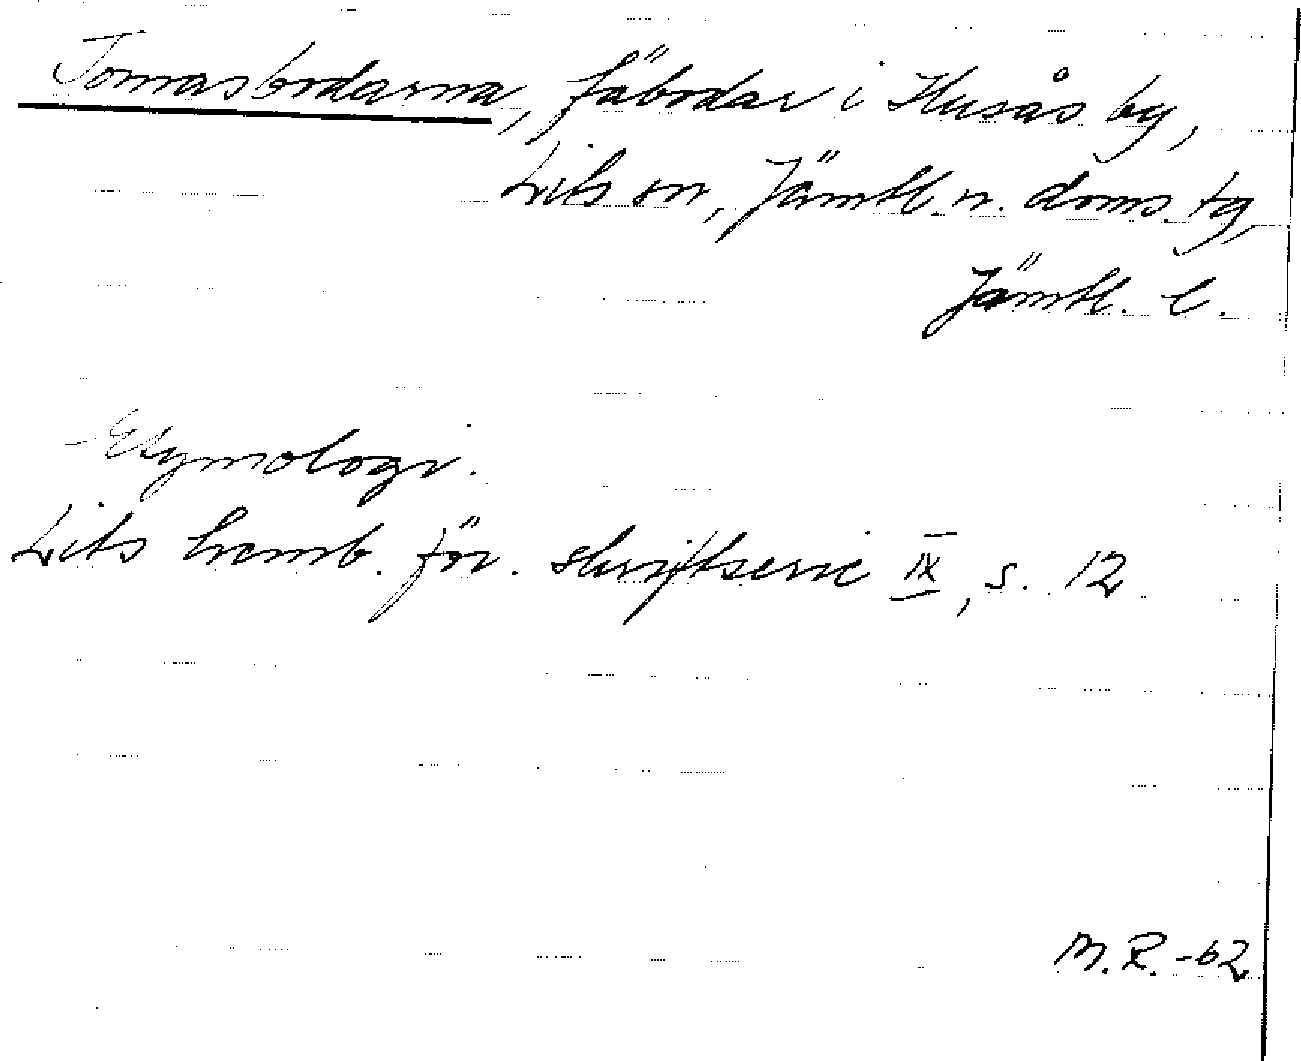 Tomasbodarna, fäbodar i Husås by,
Lits sn, Jämtl. n. doms. tg,
Jämtl. l.
Etymologi.
Lits hemb. för. skriftserie IX, s. 12
M.R. -62